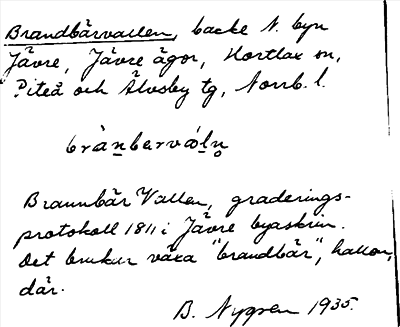 Brandbärvallen, backe N. byn
Jävre, Jävre ägor, Hortlax sn,
Piteå och Älvsby tg, Norrb. l.
brànbervál̥n̥
Braunbär Vallen, graderings-
protokoll 1811 i Jävre byaskrin.
Det brukur växa "brandbär", hallon,
där.
B. Nygren 1935.